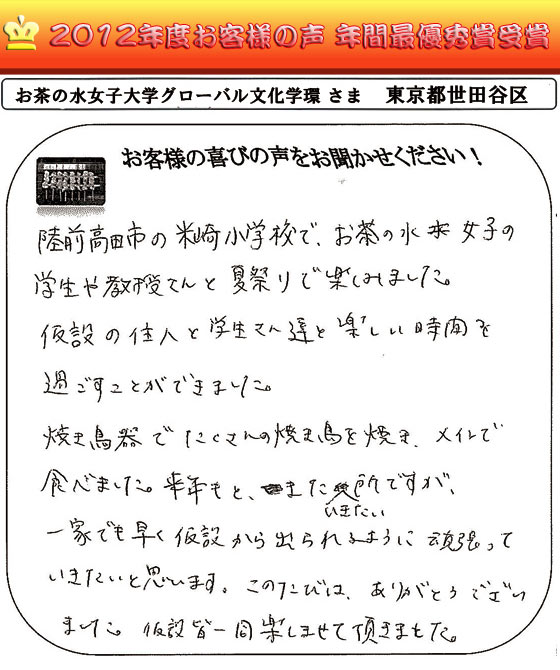 2012年度お客様の声 年間最優秀賞受賞
お茶の水女子大学グローバル文化学環 さま 東京都世田谷区
お客様の喜びの声をお聞かせください！
陸前高田市の米崎小学校で、お茶の水 女子の
学生や教授さんと夏祭りで楽しみました。
仮設の住人と学生さん達と楽しい時間を
過ごすことができました。
焼き鳥器でたくさんの焼き鳥を焼き、メインで
食べました。来年もと、またの所ですが、
いきたい
一家でも早く仮設から出られるように頑張って
いきたいと思います。このたびは、ありがとうござい
ました。仮設皆一同楽しませて頂きました。